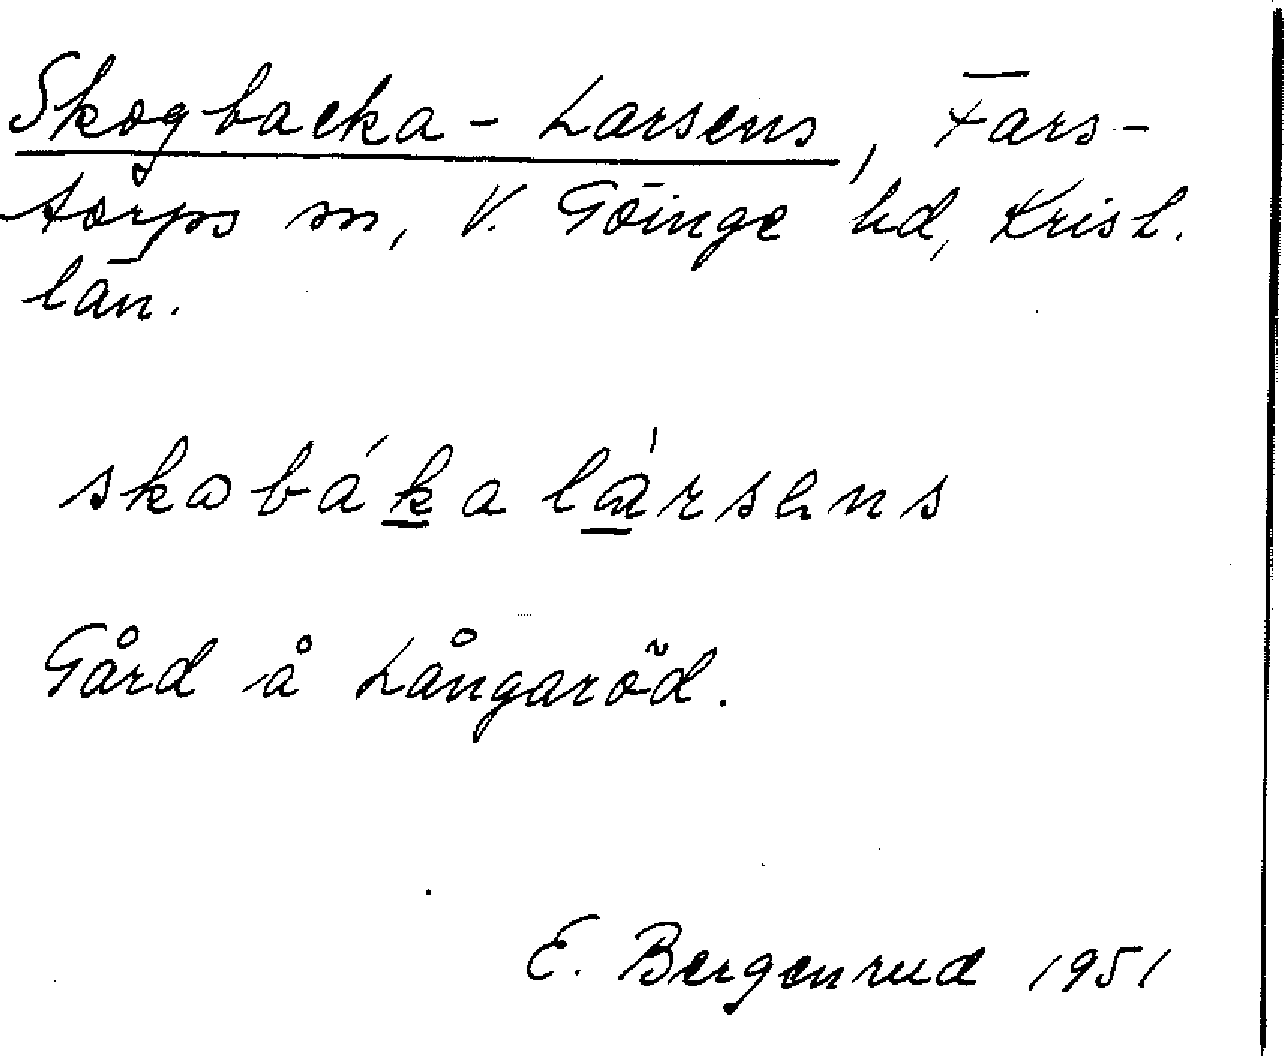 Skogbacka-Larsens, Fars-
torps sn, V. Göinge hd, Krist.
län.
skɷbák̲a la̲rsɛns
Gård å Långaröd.
E. Bergenrud 1951